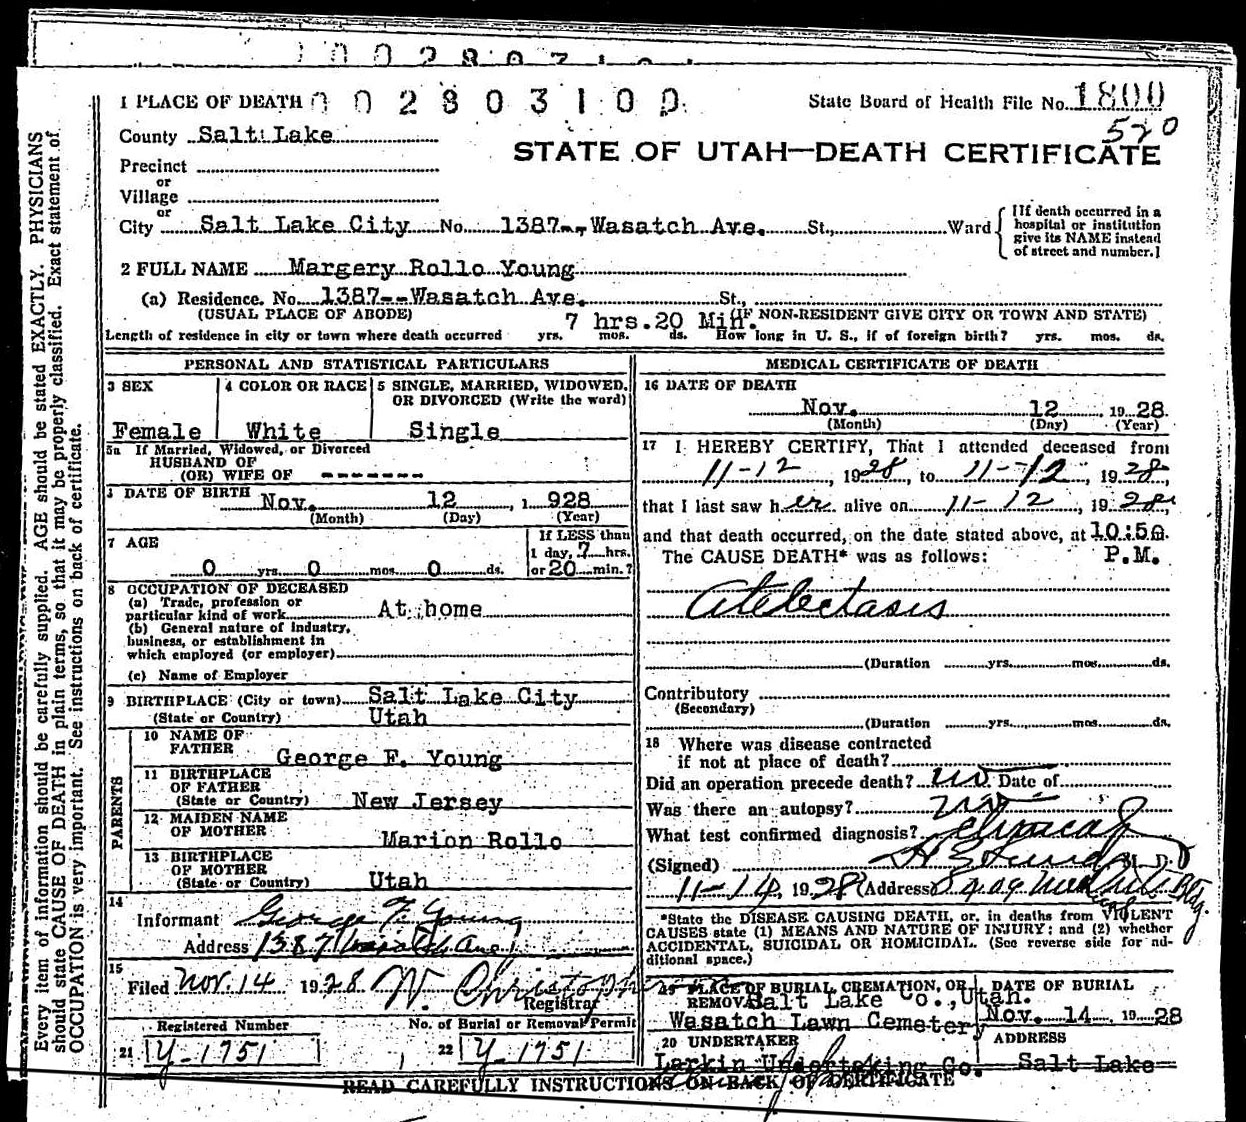 1 PLACE OF DEATH 0 0 2 8 0 3 1 0 0. State Board of Health File No. 1800
520
County Salt Lake
STATE OF UTAH—DEATH CERTIFICATE
Precinct
or
Village
or
City Salt Lake City No. 1387--Wasatch Ave. St., Ward
[If death occurred in a
hospital or institution
give its NAME instead
of street and number.]
2 FULL NAME Margery Rollo Young
(a) Residence. No. 1387--Wasatch Ave. St.,
(USUAL PLACE OF ABODE) 7 hrs.20 Min. (IF NON-RESIDENT GIVE CITY OR TOWN AND STATE)
Length of residence in city or town where death occurred yrs. mos. ds. How long in U. S., if of foreign birth? yrs. mos. ds.
PERSONAL AND STATISTICAL PARTICULARS
3 SEX 4 COLOR OR RACE 5 SINGLE, MARRIED, WIDOWED,
OR DIVORCED (Write the word)
Female White Single
5a If Married, Widowed, or Divorced
HUSBAND OF
(OR) WIFE OF -------
DATE OF BIRTH Nov. 12, 1 928
(Month) (Day) (Year)
7 AGE If LESS than
1 day, 7 hrs.
0 yrs. 0 mos. 0 ds. or 20 min.?
8 OCCUPATION OF DECEASED
(a) Trade, profession or
particular kind of work At home
(b) General nature of industry,
business, or establishment in
which employed (or employer)
(c) Name of Employer
9 BIRTHPLACE (City or town) Salt Lake City
(State or Country) Utah
PARENTS
10 NAME OF
FATHER George F. Young
11 BIRTHPLACE
OF FATHER
(State or Country) New Jersey
12 MAIDEN NAME
OF MOTHER Marion Rollo
13 BIRTHPLACE
OF MOTHER
(State or Country) Utah
14
Informant George F. Young
Address 1387 Wasatch Ave.
15
Filed Nov. 14 1928 W. Christoph
Registrar
Registered Number No. of Burial or Removal Permit
21 Y-1751 22 Y-1751
MEDICAL CERTIFICATE OF DEATH
16 DATE OF DEATH
Nov. 12 1928
(Month) (Day) (Year)
17 I HEREBY CERTIFY, That I attended deceased from
11-12, 1928 to 11-12, 1928,
that I last saw her alive on 11-12, 1928,
and that death occurred, on the date stated above, at 10:50
The CAUSE DEATH* was as follows: P.M.
Atelectasis
(Duration yrs. mos. ds.
Contributory
(Secondary)
(Duration yrs. mos. ds.
18 Where was disease contracted
if not at place of death?
Did an operation precede death? no Date of
Was there an autopsy? no
What test confirmed diagnosis? clinical
(Signed) M. D.
11-14, 1928 (Address) Medical Bldg.
*State the DISEASE CAUSING DEATH, or, in deaths from VIOLENT
CAUSES state (1) MEANS AND NATURE OF INJURY; and (2) whether
ACCIDENTAL, SUICIDAL OR HOMICIDAL. (See reverse side for ad-
ditional space.)
19 PLACE OF BURIAL, CREMATION, OR DATE OF BURIAL
REMOVAL Salt Lake Co., Utah.
Wasatch Lawn Cemetery Nov. 14 1928
20 UNDERTAKER ADDRESS
Larkin Undertaking Co. Salt Lake
READ CAREFULLY INSTRUCTIONS ON BACK OF CERTIFICATE
Every item of information should be carefully supplied. AGE should be stated EXACTLY. PHYSICIANS
should state CAUSE OF DEATH in plain terms, so that it may be properly classified. Exact statement of
OCCUPATION is very important. See instructions on back of certificate.